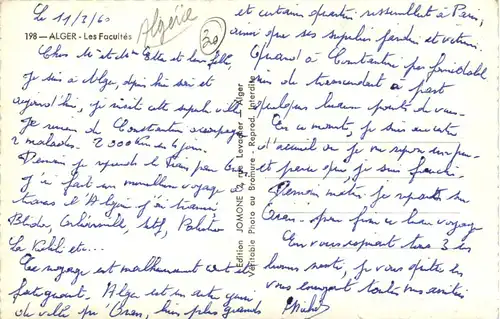 Le 11/2/60
Algérie
20
198 — ALGER - Les Facultés
Cher Mr et Mme et leur fille,
Je suis à Alger, depuis hier soir et
aujourd'hui, je visite cette superbe ville
Je reviens de Constantine accompagner
2 malades. 2 000 Km en 6 jours.
Demain je reprends le train pour Oran
J'ai fait un merveilleux voyage à
travers l'Algérie j'ai traversé
Blida, Orléansville, Sétif,
La Kabylie etc...
Ce voyage est malheureusement
fatiguant. Alger est un autre genre
de ville qu'Oran, bien plus grande
Edition JOMONE, rue Levacher - Alger
Véritable Photo au Bromure - Reprod. Interdite
et certains quartiers ressemblent à Paris,
ainsi que ses superbes jardins et
Quand à Constantine pas formidable
rien de transcendant à part
quelques beaux points de vue.
En ce moment, je suis au centre
d'accueil où je me repose un peu
et parce que, je suis
Demain matin, je repartirai sur
Oran pour finir ce beau voyage
En vous espérant tous 3 en
bonne santé, je vous quitte en
vous envoyant toutes mes amitiés
Michel